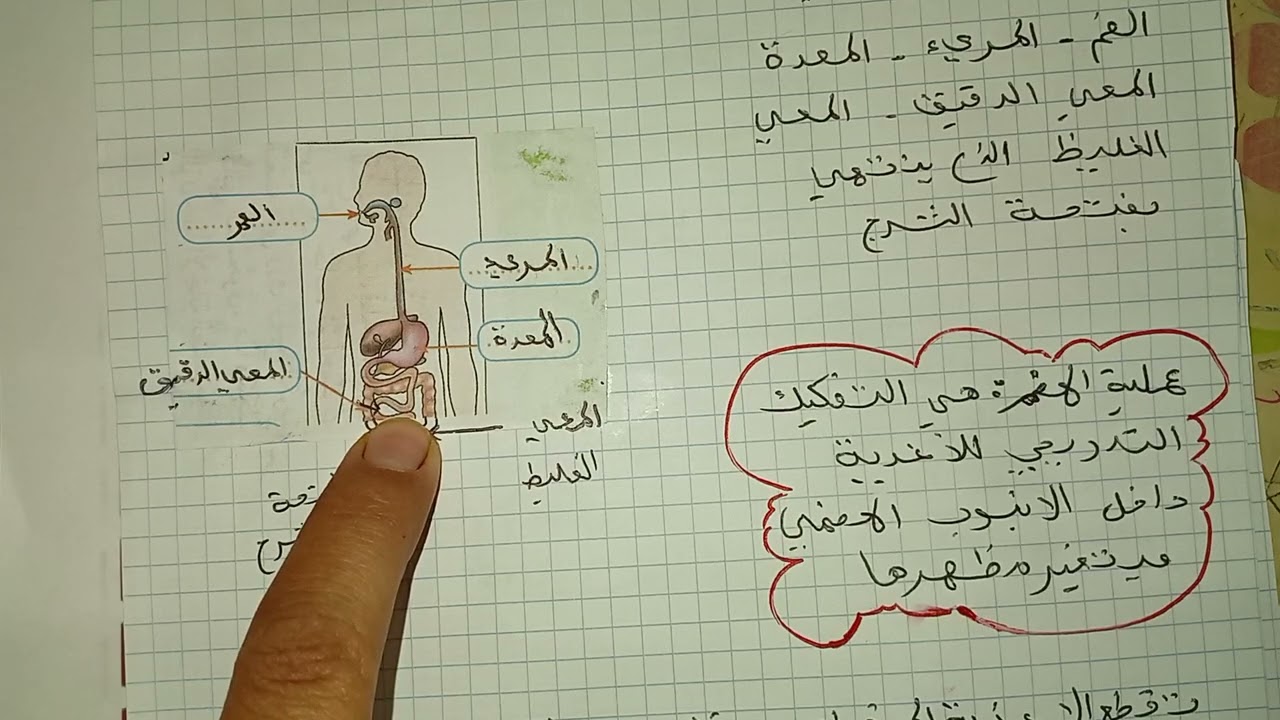 الفم - المريء - المعدة
المعي الدقيق - المعي
الغليظ الذي ينتهي
بفتحة الشرج
الفم
المريء
المعدة
المعي الدقيق
المعي
الغليظ
عملية الهضم هي التفكيك
التدريجي للأغذية
داخل الانبوب الهضمي
فيتغير مظهرها